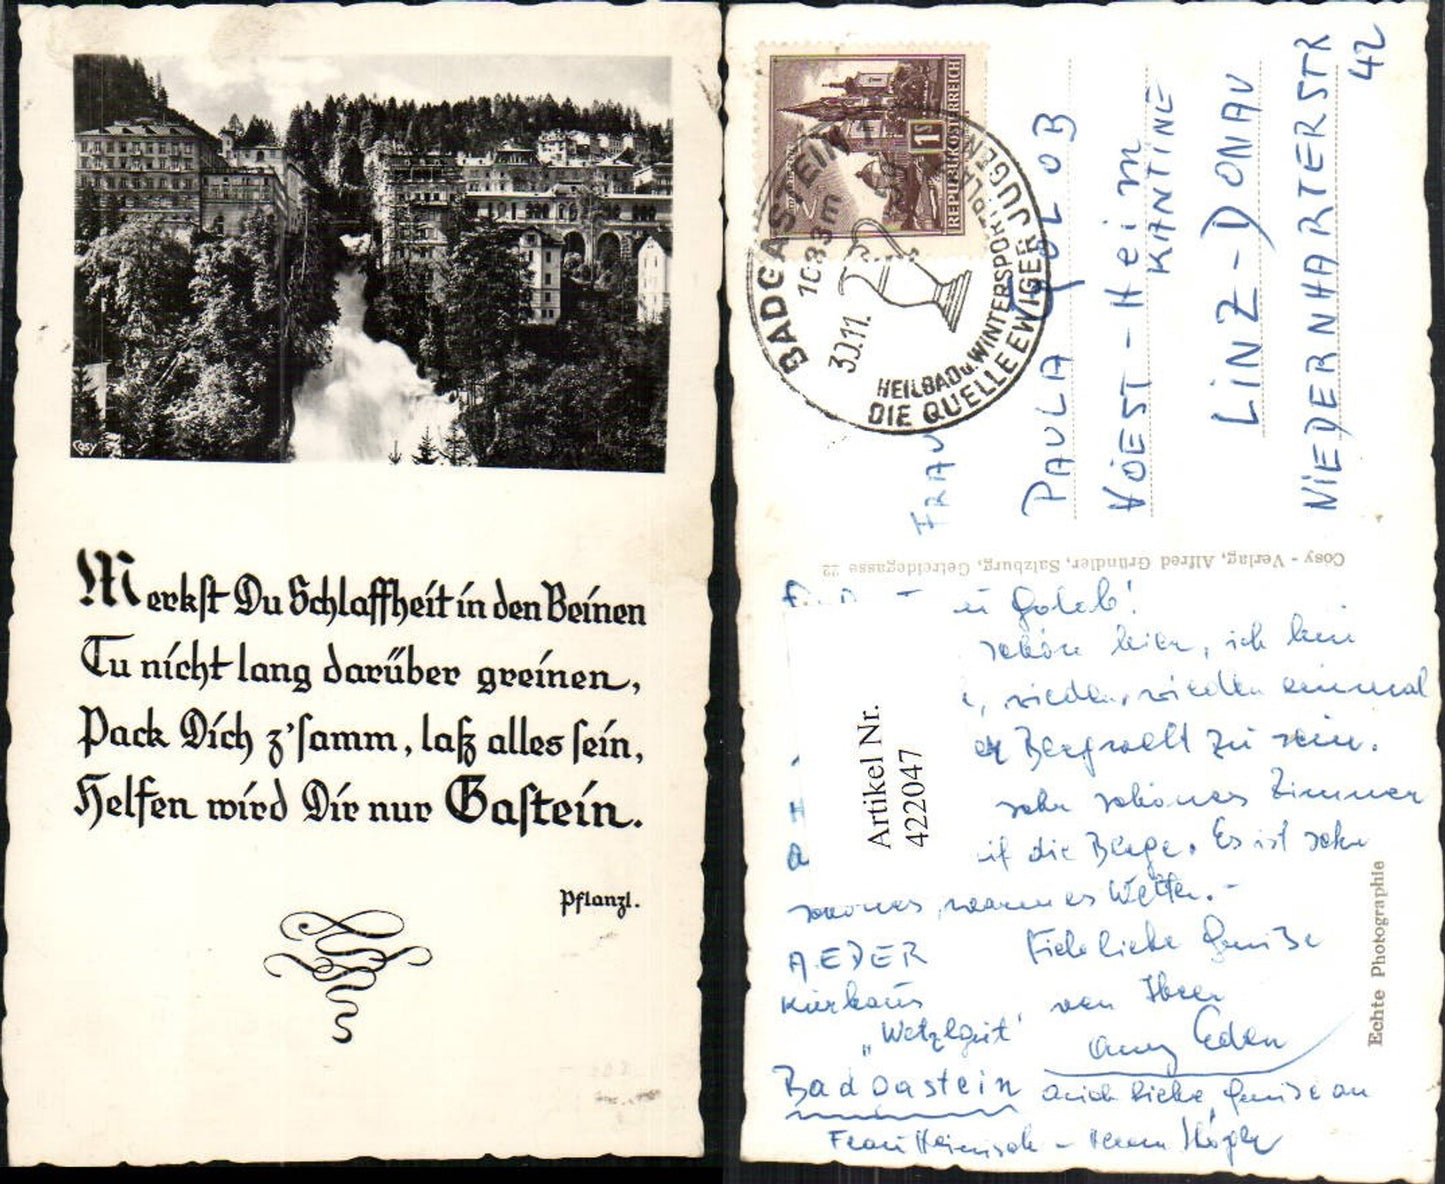 Cosy
Merkst Du Schlaffheit in den Beinen
Tu nicht lang darüber greinen,
Pack Dich z'samm, laß alles sein,
Helfen wird Dir nur Gastein.
Pflanzl.
REPUBLIK ÖSTERREICH
1S
BADGASTEIN
1083m
30.11.
HEILBAD u. WINTERSPORTPLATZ
DIE QUELLE EWIGER JUGEND
FRAU
PAULA GOLOB
VÖEST-Heim
KANTINE
LINZ-DONAU
NIEDERNHARTERSTR
42
Cosy - Verlag, Alfred Gründler, Salzburg, Getreidegasse 22
Golob!
schön hier, ich bin
, wieder, wieder einmal
Bergwelt zu sein.
sehr schönes Zimmer
die Berge. Es ist sehr
schönes, warmes Wetter.-
Artikel Nr.
422047
A. EDER
Kurhaus
"Wetzlgut"
Bad Gastein
Viele liebe Grüße
von Ihrer
Eder
auch liebe Grüße an
Frau
Echte Photographie